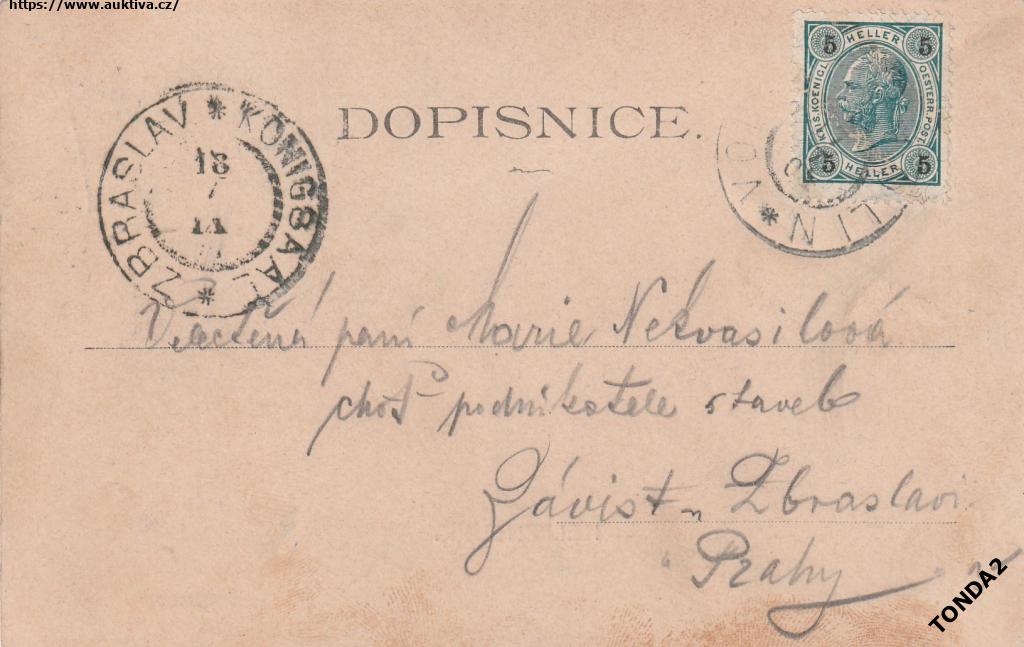 https://www.auktiva.cz/
5 HELLER 5
KAIS. KOENIGL. OESTERR. POST.
5 HELLER 5
ZBRASLAV * KÖNIGSAAL *
18
7
DOPISNICE.
LIN * VO
Velectěná paní Marie Nekvasilová
choť podnikatele staveb
Závist u Zbraslavi
u Prahy
TONDA2